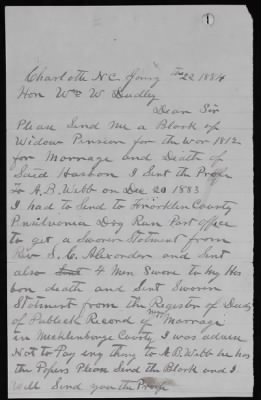 1
Charlotte NC Jany the 22 1884
Hon Wm W Dudley
Dear Sir
Please Send Me a Blank of
Widow Pension for the War 1812
for Marrage and Death of
Said Husbon I Sent the Profe
To A.B. Webb on Dec 20 1883
I had to Send to County
Pensilvenia Dry Run Post office
to get a Sworen Statment from
Rev S. C. Alexander and Sint
also 4 Men Swore to my Hus
bon death and Sint Sworin
Statment from the Register of Deeds
of Publick Record of my Marrage
in Mecklenburge County I was advised
Not to Pay eny thing to A.B. Webb he has
the Papers Pleas Send the Blank and I
will Send you the Profe